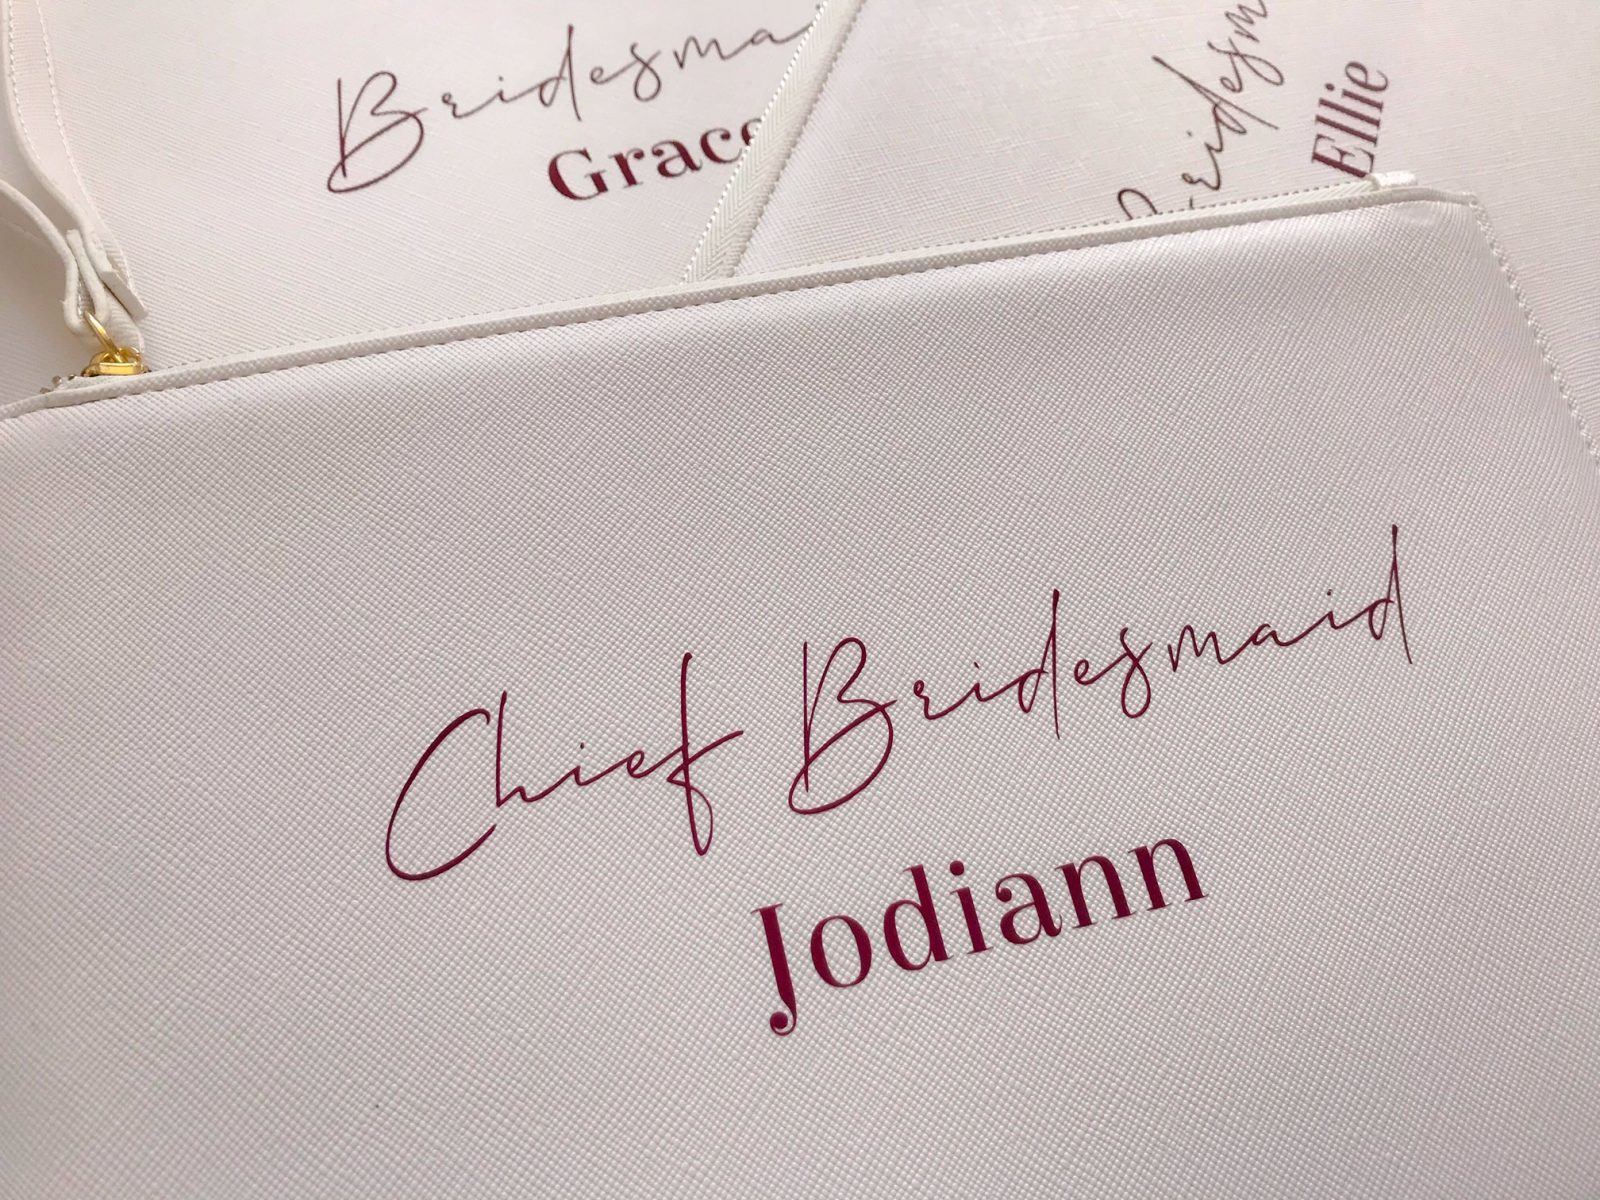 Bridesma
Grace
Bridesm
Ellie
Chief Bridesmaid
Jodiann